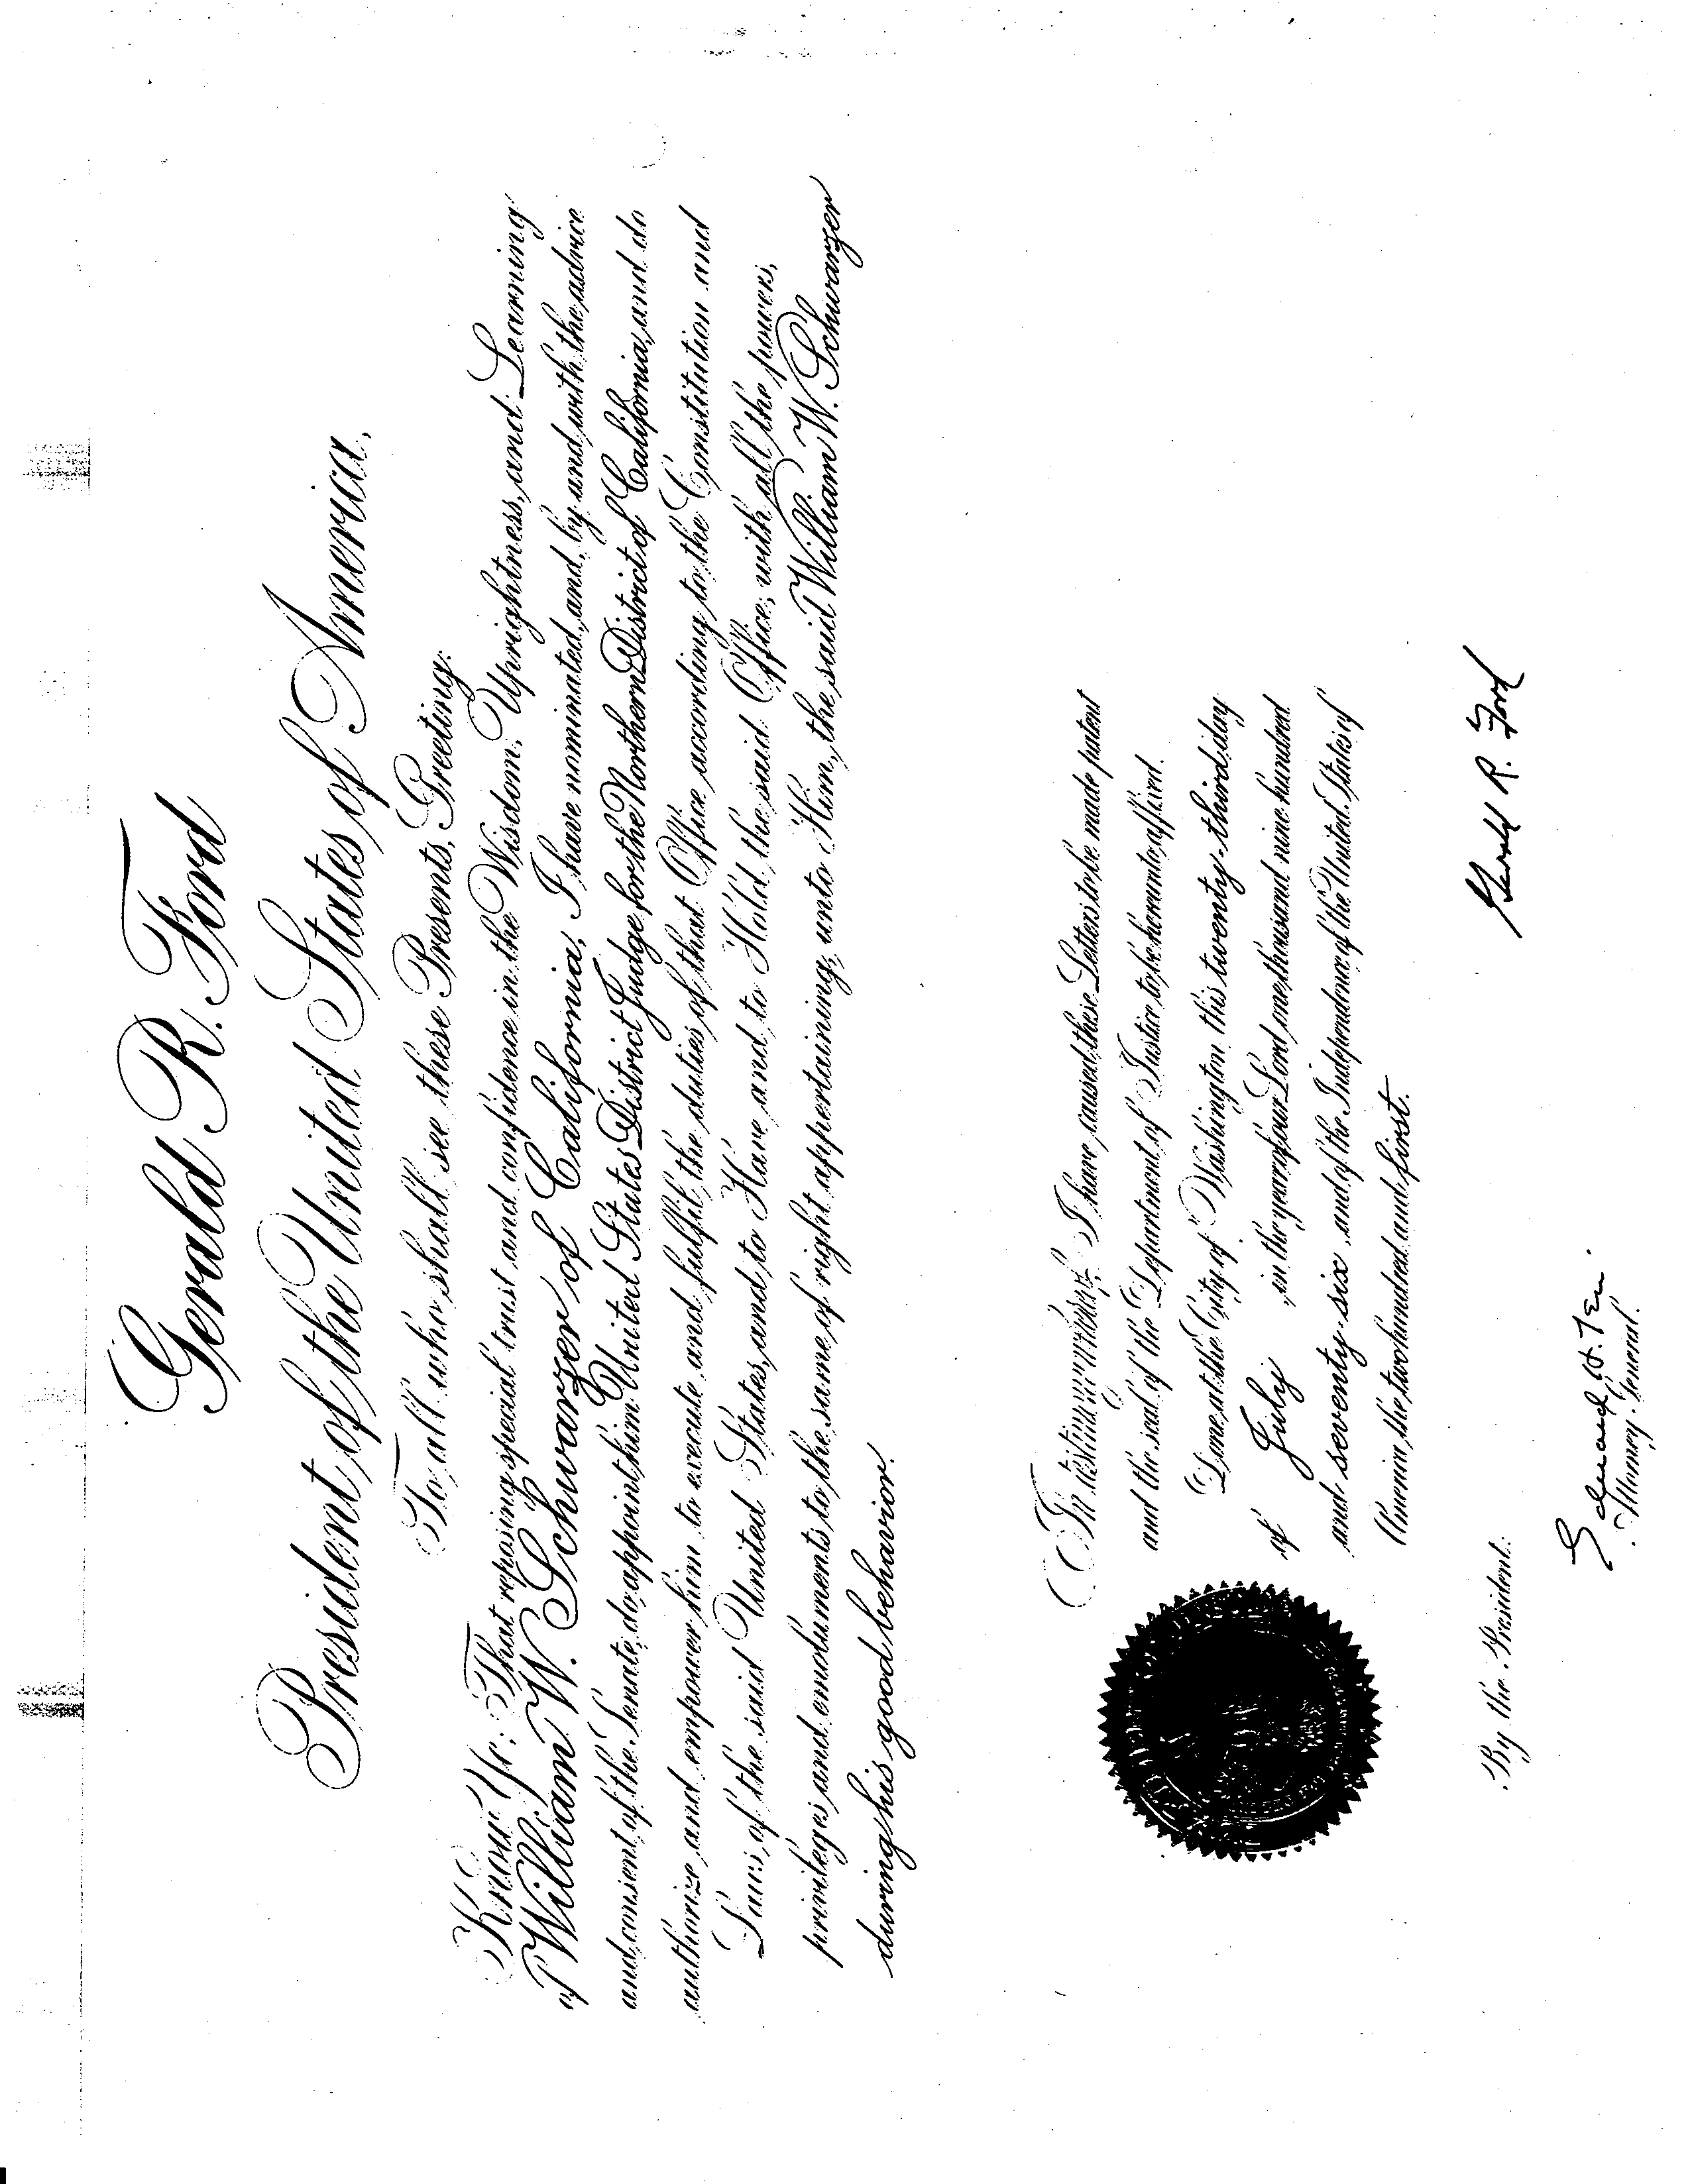 Gerald R. Ford
President of the United States of America,
To all who shall see these Presents, Greeting:
Know Ye: That reposing special trust and confidence in the Wisdom, Uprightness, and Learning
of William W. Schwarzer of California, I have nominated, and, by and with the advice
and consent of the Senate, do appoint him United States District Judge for the Northern District of California, and do
authorize and empower him to execute and fulfil the duties of that Office according to the Constitution and
Laws of the said United States, and to Have and to Hold the said Office, with all the powers,
privileges and emoluments to the same of right appertaining, unto Him, the said William W. Schwarzer
during his good behavior.
In testimony whereof, I have caused these Letters to be made patent
and the seal of the Department of Justice to be hereunto affixed.
Done at the City of Washington this twenty-third day
of July in the year of our Lord one thousand nine hundred
and seventy-six, and of the Independence of the United States of
America the two hundred and first.
Gerald R. Ford
By the President:
Edward H. Levi
Attorney General.